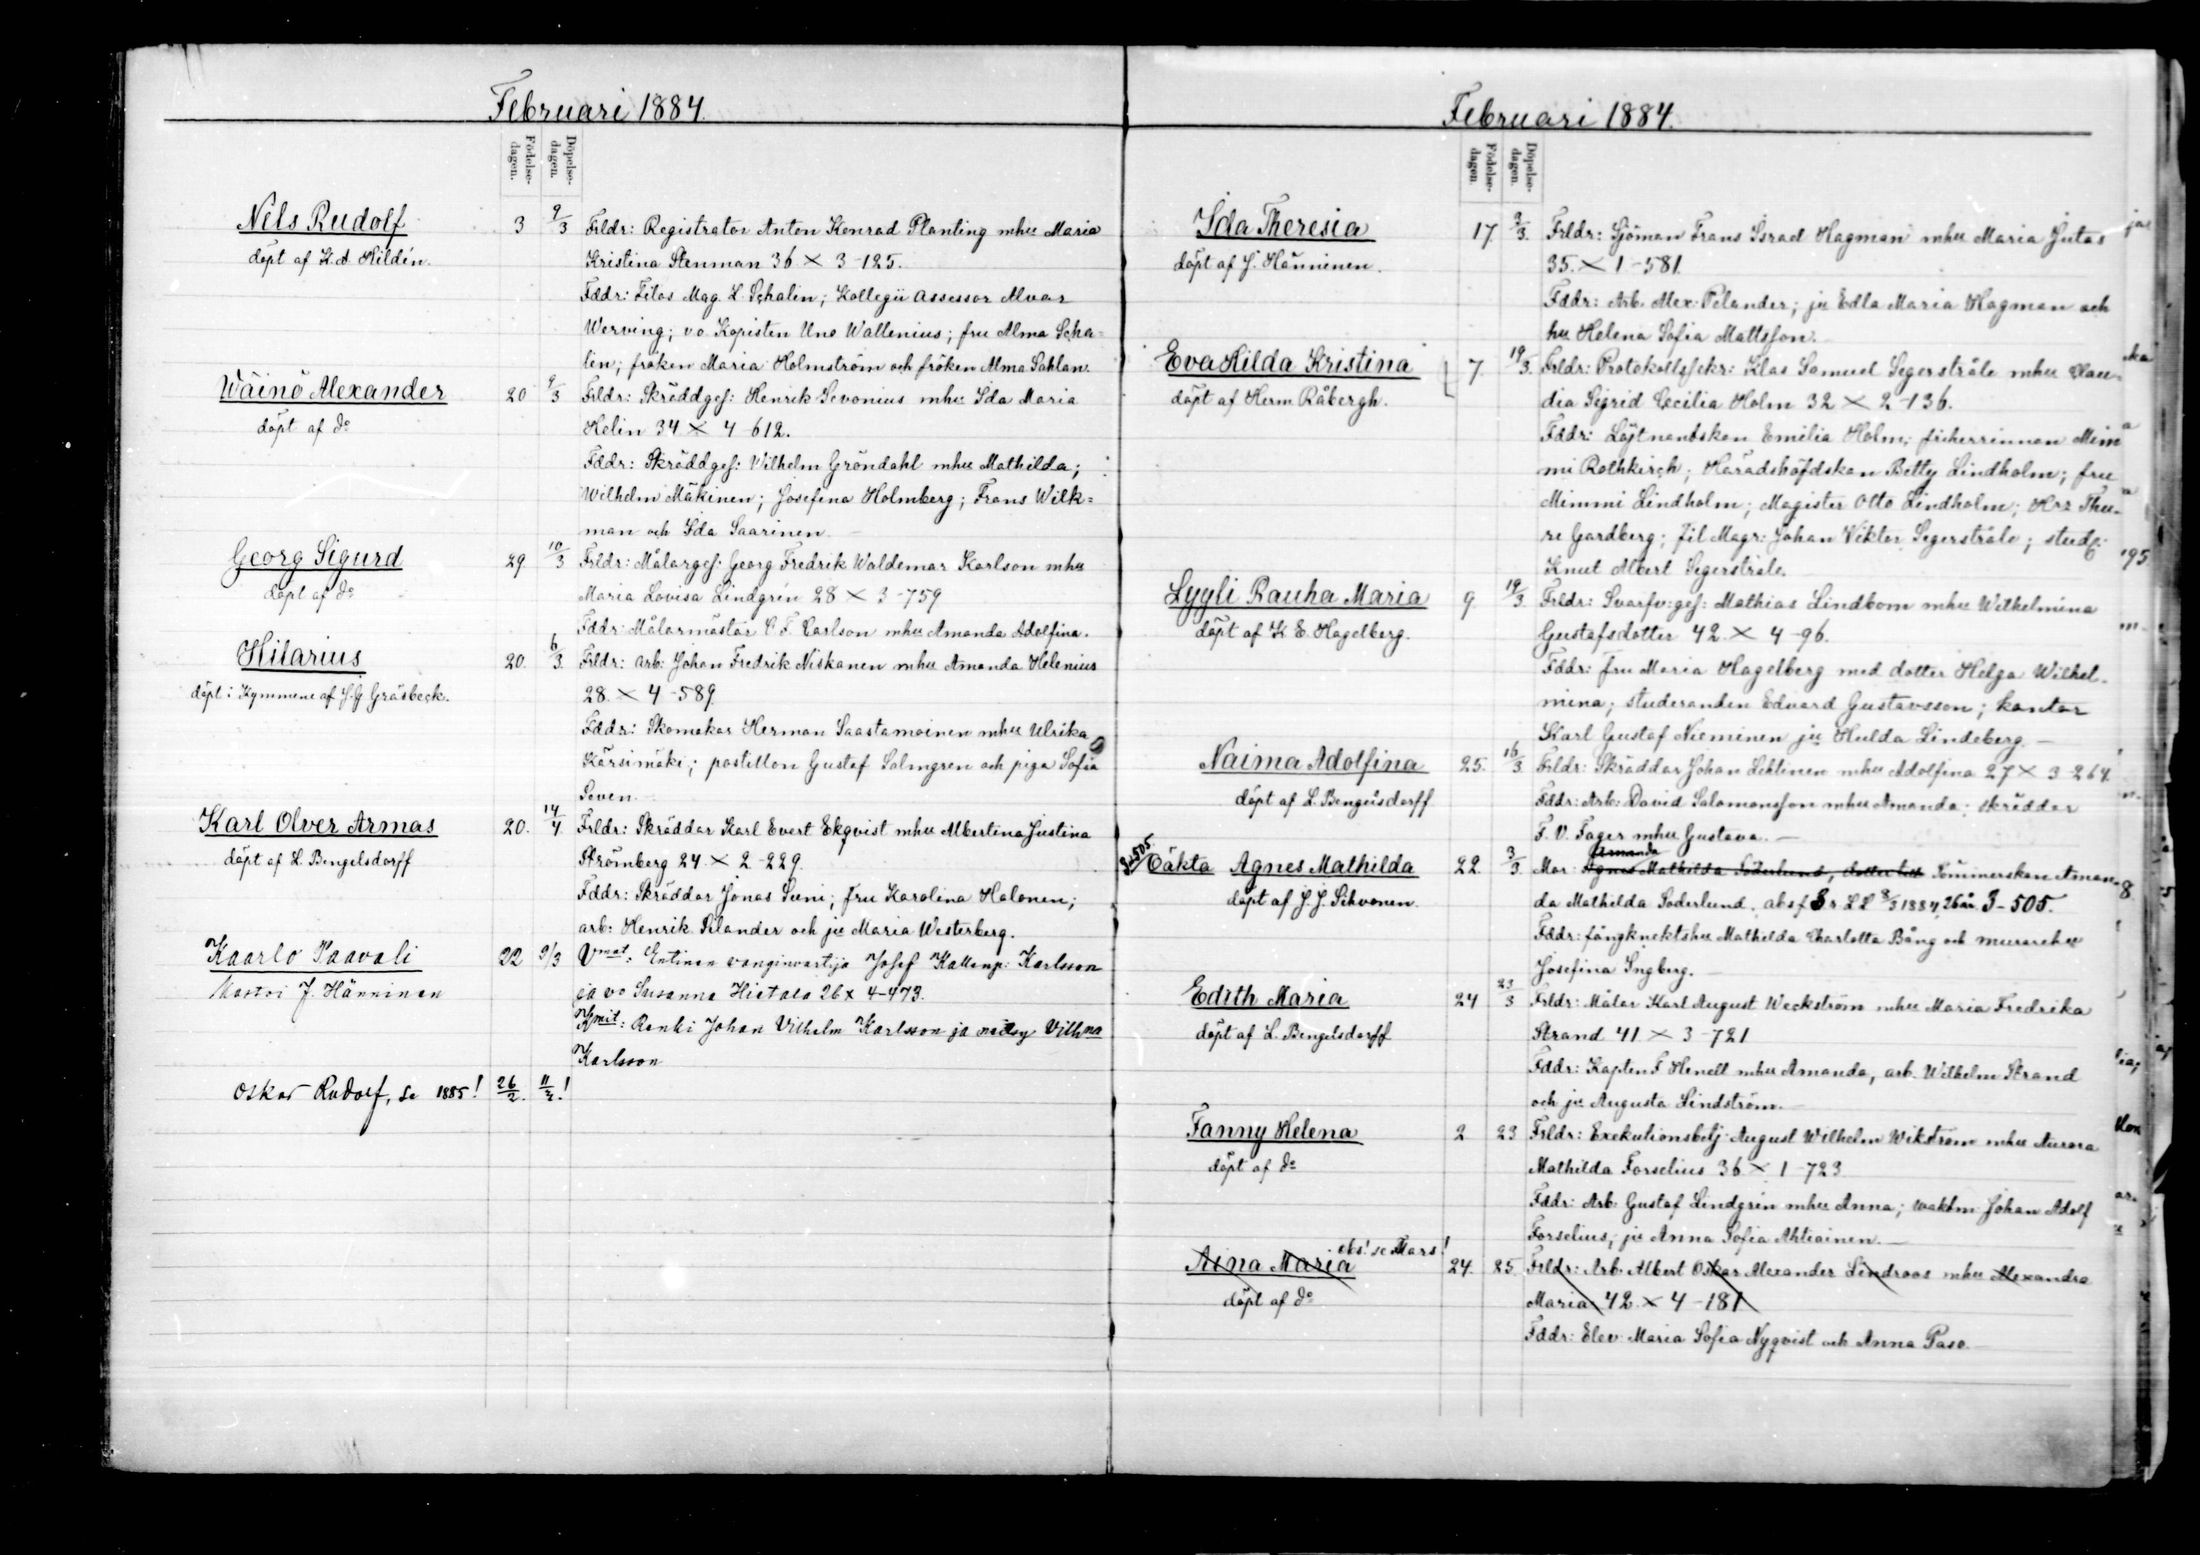 Februari 1884.
Födelse-dagen.
Döpelse-dagen.
Nels Rudolf
döpt af K. A. Hildén.
3 9/3 Frldr: Registrator Anton Konrad Planting mhu Maria
Kristina Stenman 36 × 3-125.
Fddr: Filos Mag. K. Schalin; Kollegii assessor Alvar
Werving; vo. Kopisten Uno Wallenius; fru Alma Scha=
lin; fröken Maria Holmström och fröken Alma Sahlan.
Wäinö Alexander
döpt af do
20 9/3 Frldr: Skräddges: Henrik Sevonius mhu Ida Maria
Helin 34 × 4 612.
Fddr: Skräddges: Wilhelm Gröndahl mhu Mathilda;
Wilhelm Mäkinen; Josefina Holmberg; Frans Wilk=
man och Ida Saarinen.
Georg Sigurd
döpt af do
29 10/3 Frldr: Målarges: Georg Fredrik Waldemar Karlson mhu
Maria Lovisa Lindgrén 28 × 3-759
Fddr: Målarmästar C. F. Carlson mhu Amanda Adolfina.
Hilarius
döpt i Kymmene af J. G. Gräsbeck.
20. 6/3. Frldr: arb: Johan Fredrik Niskanen mhu Amanda Helenius
28. × 4-589.
Fddr: Skomakar Herman Saastamoinen mhu Ulrika
Kärsimäki; postillon Gustaf Salmgren och piga Sofia
Seven.
Karl Olver Armas
döpt af L. Bengelsdorff
20. 14/4. Frldr: Skräddar Karl Evert Ekqvist mhu Albertina Justina
Strömberg 24. × 2-229.
Fddr: Skräddar Jonas Suni; fru Karolina Halonen;
arb: Henrik Pelander och ju Maria Westerberg.
Kaarlo Paavali
kastoi J. Hänninen
22 9/3 Vmat: Entinen vanginvartija Josef Karlsson
ja vo Susanna Hietala 26 × 4-473.
Kmit: Renki Johan Vilhelm Karlsson ja Vilhna
Karlsson
Oskar Rudolf, se 1885! 26/2. 11/3!
Februari 1884.
Födelse-dagen
Döpelse-dagen.
Ida Theresia
döpt af J. Hänninen.
17. 9/3. Frldr: Sjöman Frans Israel Hagman mhu Maria Jutas
35. × 1-581.
Fddr: Arb. Alex: Pelander; ju Edla Maria Hagman och
hu Helena Sofia Mattsson.
Eva Hilda Kristina
döpt af Herm. Råbergh.
7. 19/3. Frldr: Protokollssekr: Klas Samuel Segerstråle mhu Clau-
dia Sigrid Cecilia Holm 32 × 2-136.
Fddr: Löjtnantskan Emilia Holm; friherrinnan Mim
mi Rothkirch; Häradshöfdskan Betty Lindholm; fru
Mimmi Lindholm; Magister Otto Lindholm; Hrr Thu-
re Gardberg; fil Magr: Johan Viktor Segerstråle; stud:
Knut Albert Segerstråle.
Lyyli Rauha Maria
döpt af K. E. Hagelberg.
9 19/3. Frldr: Svarfv:ges: Mathias Lindbom mhu Wilhelmina
Gustafsdotter 42. × 4-96.
Fddr: fru Maria Hagelberg med dotter Helga Wilhel-
mina; studeranden Edvard Gustavsson; kantor
Karl Gustaf Nieminen ju Hulda Lindeberg.
Naima Adolfina
döpt af L. Bengelsdorff
25. 16/3. Frldr: Skräddar Johan Lehtinen mhu Adolfina 27 × 3-264.
Fddr: Arb: David Salomonsson mhu Amanda; skräddar
F. V. Fager mhu Gustava.
3-505.
Oäkta Agnes Mathilda
döpt af J. J. Sihvonen.
22. 3/3. Mor: Agnes Mathilda Söderlund, Amanda Tömmerskan Aman-
da Mathilda Söderlund. 26 år 3-505.
Fddr: fångknektshu Mathilda Charlotta Bång och murarehu
Josefina Ingberg.
Edith Maria
döpt af L. Bengelsdorff
24 23/3 Frldr: Målar Karl August Weckström mhu Maria Fredrika
Strand 41. × 3-721
Fddr: Kapten F Henell mhu Amanda, arb. Wilhelm Strand
och ju Augusta Lindström.
Fanny Helena
döpt af do
2 23 Frldr: Exekutionsbetj: August Wilhelm Wikström mhu Aurora
Mathilda Forselius 36 × 1-723
Fddr: Arb. Gustaf Lindgrén mhu Anna; waktm: Johan Adolf
Forselius, ju Anna Sofia Ahtiainen.
obs! se Mars!
Aina Maria
döpt af do
24. 25. Frldr: Arb. Albert Oskar Alexander Lindroos mhu Alexandra
Maria 42. × 4-181
Fddr: Elev: Maria Sofia Nyqvist och Anna Paso.